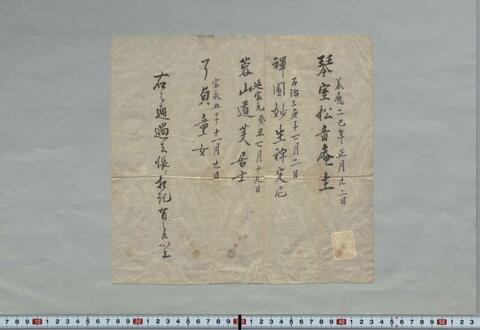 承應二巳年正月廿二日
琴室松音庵主
万治三庚子七月二日
禪圓妙生禅定尼
延宝元癸丑七月十九日
蓉山道芙居士
宝永五子十一月日
了貞童女
右之通過去帳相記有之